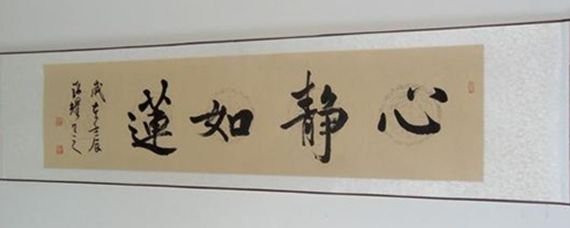 心静如蓮
歲在壬辰